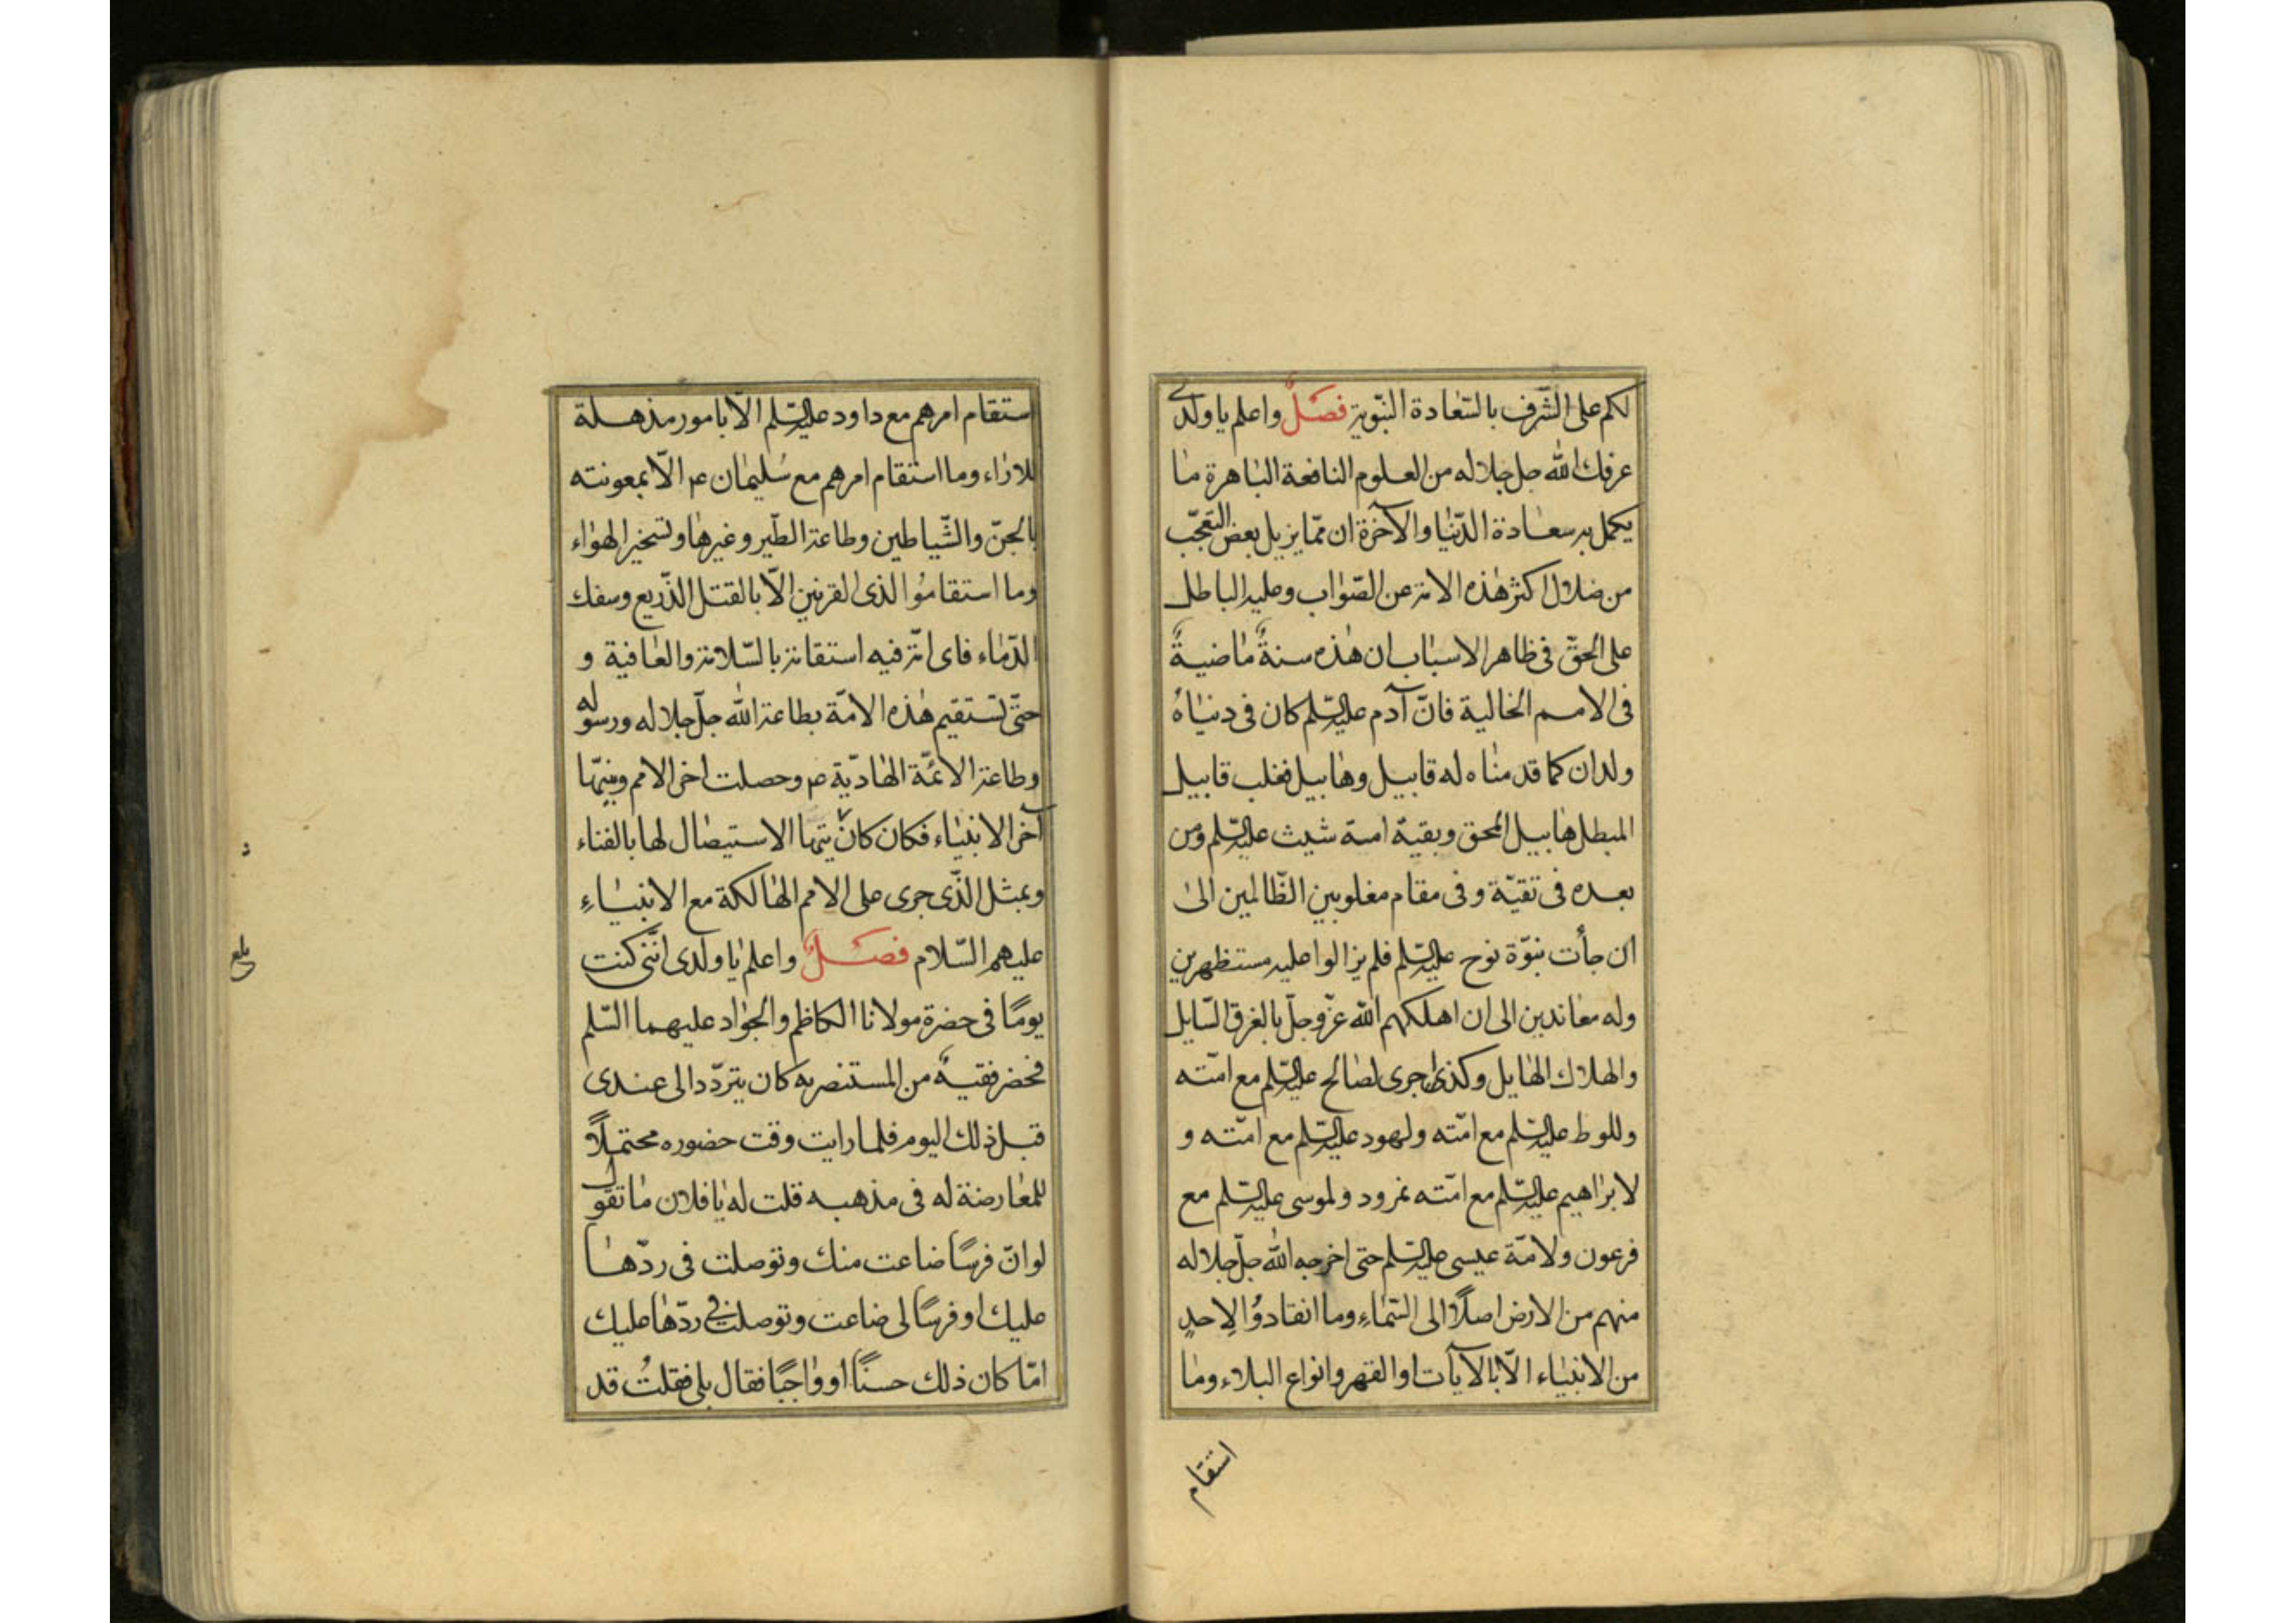 لكم على الشّرف بالسّعادة النّبوية فصلٌ واعلم يا ولدى
عرفك الله جل جلاله من العلوم النافعة الباهرة ما
يكمل به سعادة الدّنيا والآخرة ان ممّا يزيل بعض التعجّب
من ضلال اكثر هذه الامة عن الصّواب وغلبه الباطل
على الحقّ فى ظاهر الاسباب ان هذه سنةٌ ماضيةٌ
فى الامم الخالية فانّ آدم عليه السّلم كان فى دنياهُ
ولدان كما قدمناه له قابيل وهابيل فغلب قابيل
المبطل هابيل المحق وبقية امة شيث عليه السّلم ومن
بعده فى تقيّة وفى مقام مغلوبين الظّالمين الى
ان جأت نبوّة نوح عليه السّلم فلم يزالوا عليه مستظهرين
وله معاندين الى ان اهلكهم الله عزّ وجلّ بالغرق السّايل
والهلاك الهايل وكذا جرى لصالح عليه السّلم مع امّته
وللوط عليه السّلم مع امّته ولهود عليه السّلم مع امّته و
لابراهيم عليه السّلم مع امّته نمرود ولموسى عليه السّلم مع
فرعون ولامّة عيسى عليه السّلم حتى اخرجه الله جلّ جلاله
منهم من الارض اصلًا الى السّماءِ وما انقادوُا لِاحدٍ
من الانبياء الّا بالآيات او القهر وانواع البلاء وما
استقام
استقام امرهم مع داود عليه السّلم الّا بامور مذهلة
للاراء وما استقام امرهم مع سُليمان ع الّا بمعونته
بالجنّ والشّياطين وطاعة الطّير وغيرها وتسخير الهواء
وما استقامُوا لذى القرنين الّا بالقتل الذّريع وسفك
الدّماء فاى امّة فيه استقامة بالسّلامة والعافية و
حتّى تستقيم هذه الامّة بطاعة الله جلّ جلاله ورسوله
وطاعة الائمّة الهاديّة ع وحصلت اخر الامم ونبيّها
آخر الانبياء فكان كان يتها الاستيصال لها بالفناء
وبمثل الّذى جرى على الامم الهالكة مع الانبياءِ
عليهم السّلام فصلٌ واعلم يا ولدى انّنى كنت
يومًا فى حضرة مولانا الكاظم والجواد عليهما السّلم
فحضر فقيهٌ من المستنصريه كان يتردّد الى عندى
قبل ذلك اليوم فلما رايت وقت حضوره محتملًا
للمعارضة له فى مذهبه قلت له يا فلان ما تقول
لو انّ فرسًا ضاعت منك وتوصلت فى ردّها
عليك او فرسًا لى ضاعت وتوصلت فى ردّها عليك
امّا كان ذلك حسنًا او واجبًا فقال بلى فقلتُ قد
بلغ